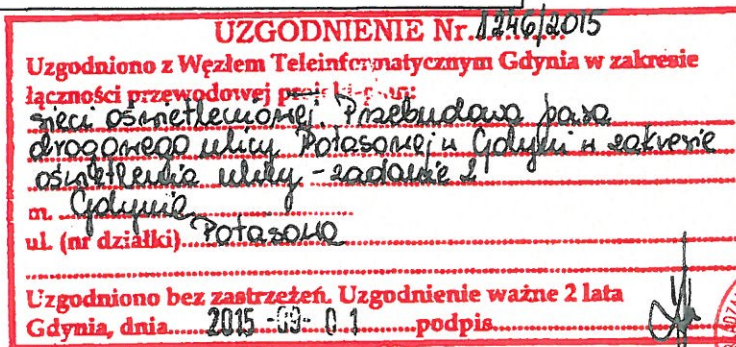 UZGODNIENIE Nr. 1246/2015
Uzgodniono z Węzłem Teleinformatycznym Gdynia w zakresie
łączności przewodowej
sieci oświetleniowej. Przebudowa pasa
drogowego ulicy Potasowej w Gdyni w zakresie
oświetlenia ulicy - zadanie 2
m. Gdynia
ul. (nr działki) Potasowa
Uzgodniono bez zastrzeżeń. Uzgodnienie ważne 2 lata
Gdynia, dnia 2015 -09- 01 podpis